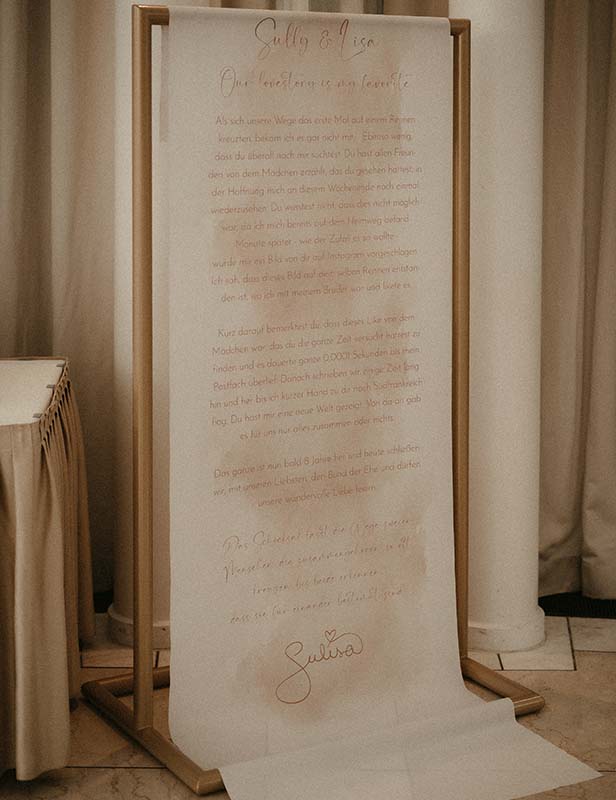 Sully & Lisa
Our lovestory is my favorite
Als sich unsere Wege das erste Mal auf einem Rennen
kreuzten, bekam ich es gar nicht mit. Ebenso wenig,
dass du überall nach mir suchtest. Du hast allen Freun-
den von dem Mädchen erzählt, das du gesehen hattest, in
der Hoffnung mich an diesem Wochenende noch einmal
wiederzusehen. Du wusstest nicht, dass dies nicht möglich
war, da ich mich bereits auf dem Heimweg befand.
Monate später - wie der Zufall es so wollte -
wurde mir ein Bild von dir auf Instagram vorgeschlagen.
Ich sah, dass dieses Bild auf dem selben Rennen entstan-
den ist, wo ich mit meinem Bruder war und likete es.
Kurz darauf bemerktest du, dass dieses Like von dem
Mädchen war, das du die ganze Zeit versucht hattest zu
finden und es dauerte ganze 0,0001 Sekunden bis mein
Postfach überlief. Danach schrieben wir einige Zeit lang
hin und her bis ich kurzer Hand zu dir nach Südfrankreich
flog. Du hast mir eine neue Welt gezeigt. Von da an gab
es für uns nur alles zusammen oder nichts.
Das ganze ist nun bald 8 Jahre her und heute schließen
wir, mit unseren Liebsten, den Bund der Ehe und dürfen
unsere wundervolle Liebe feiern.
Das Schicksal lässt die Wege zweier
Menschen, die zusammengehören, so oft
kreuzen, bis beide erkennen,
dass sie für einander bestimmt sind.
Sulisa